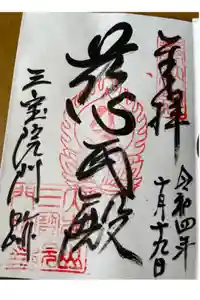 奉拝
令和四年
十月十九日
慈氏殿
三宝院門跡